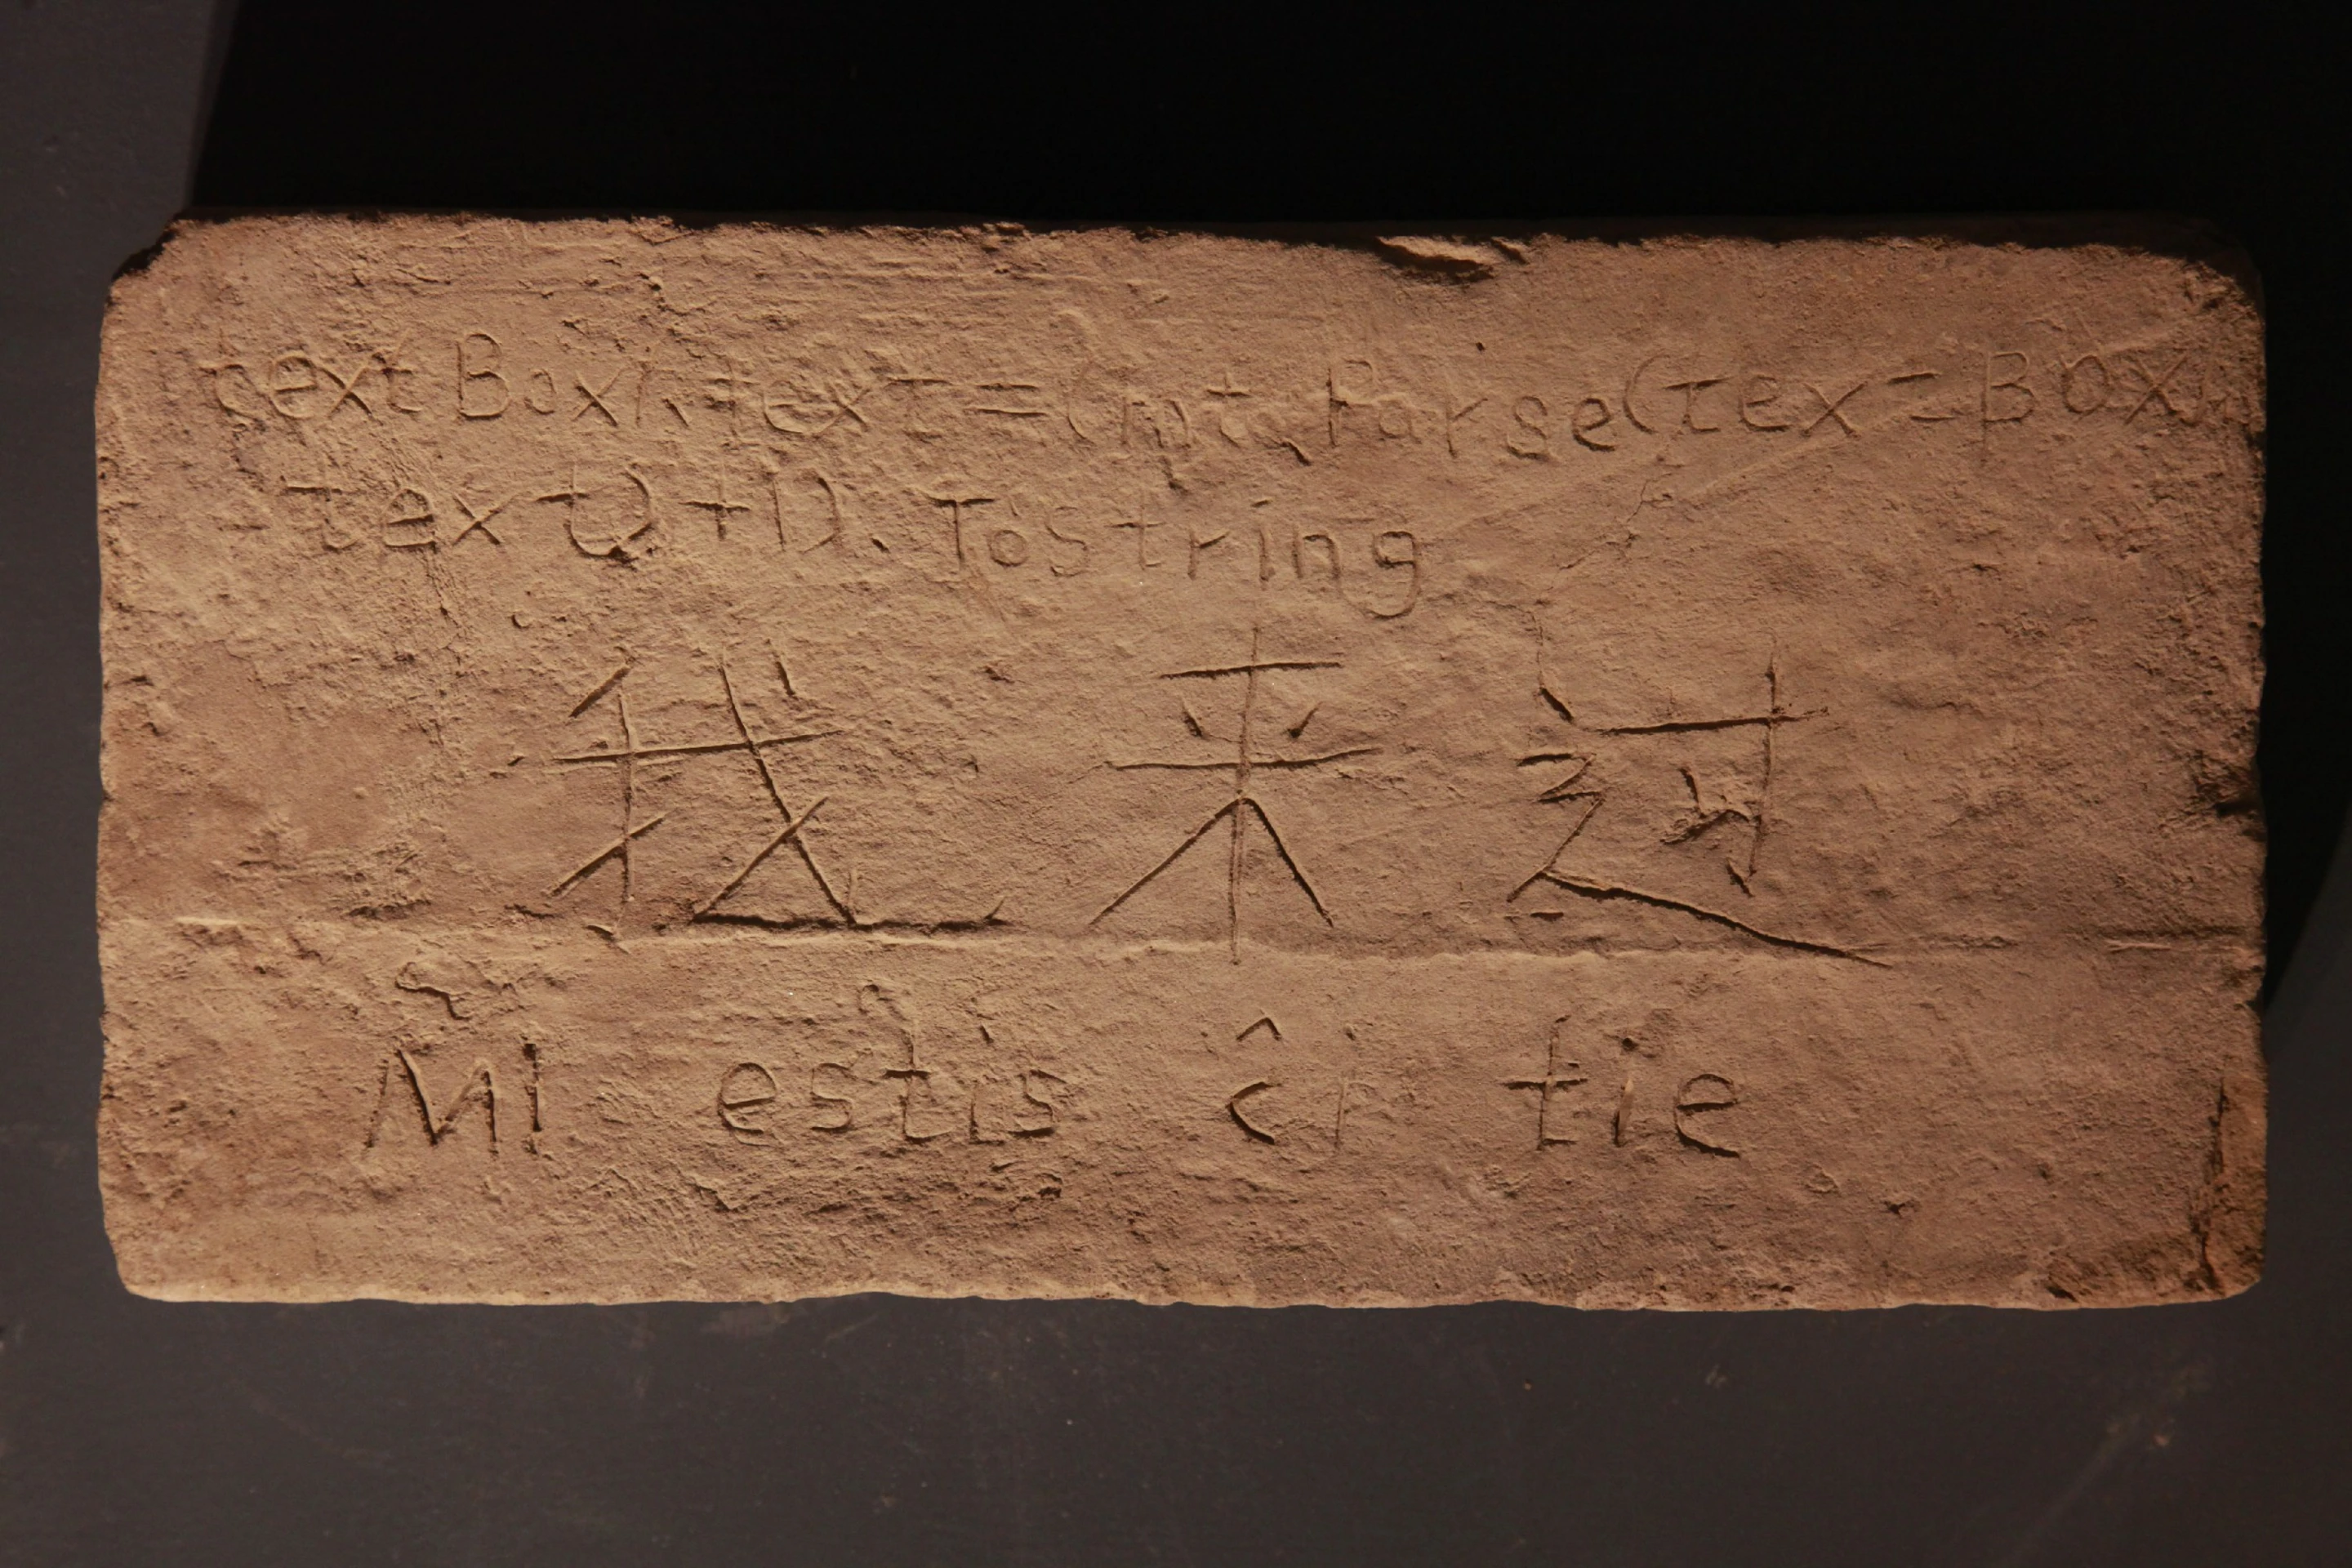 textBox1.text=(int.Parse(tex-Box1.
text()+1).ToString
我来过
Mi estis ĉi tie